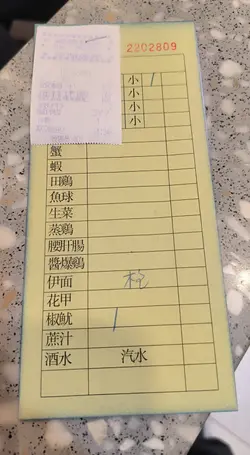 2202809
小 1
小
小
蟹
蝦
田鷄
魚球
生菜
蒸鷄
腰肝腸
醬爆鷄
伊面
花甲
椒魷 1
蔗汁
酒水 汽水